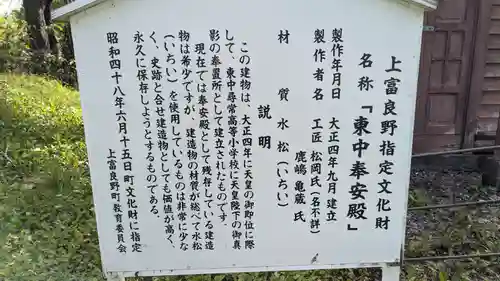 上富良野指定文化財
名称「東中奉安殿」
製作年月日　大正四年九月建立
製作者名　工匠　松岡氏（名不詳）
鹿嶋亀蔵氏
材　質　水松（いちい）
説明
この建物は、大正四年に天皇の御即位に際
して、東中尋常高等小学校に天皇陛下の御真
影の奉置所として建立されたものです。
現在では奉安殿として残存している建造
物は希少ですが、建造物の材質が総べて水松
（いちい）を使用しているものは非常に少な
く、史跡と合せ建造物としても価値が高く、
永久に保存しようとするものである。
昭和四十八年六月十五日町文化財に指定
上富良野町教育委員会